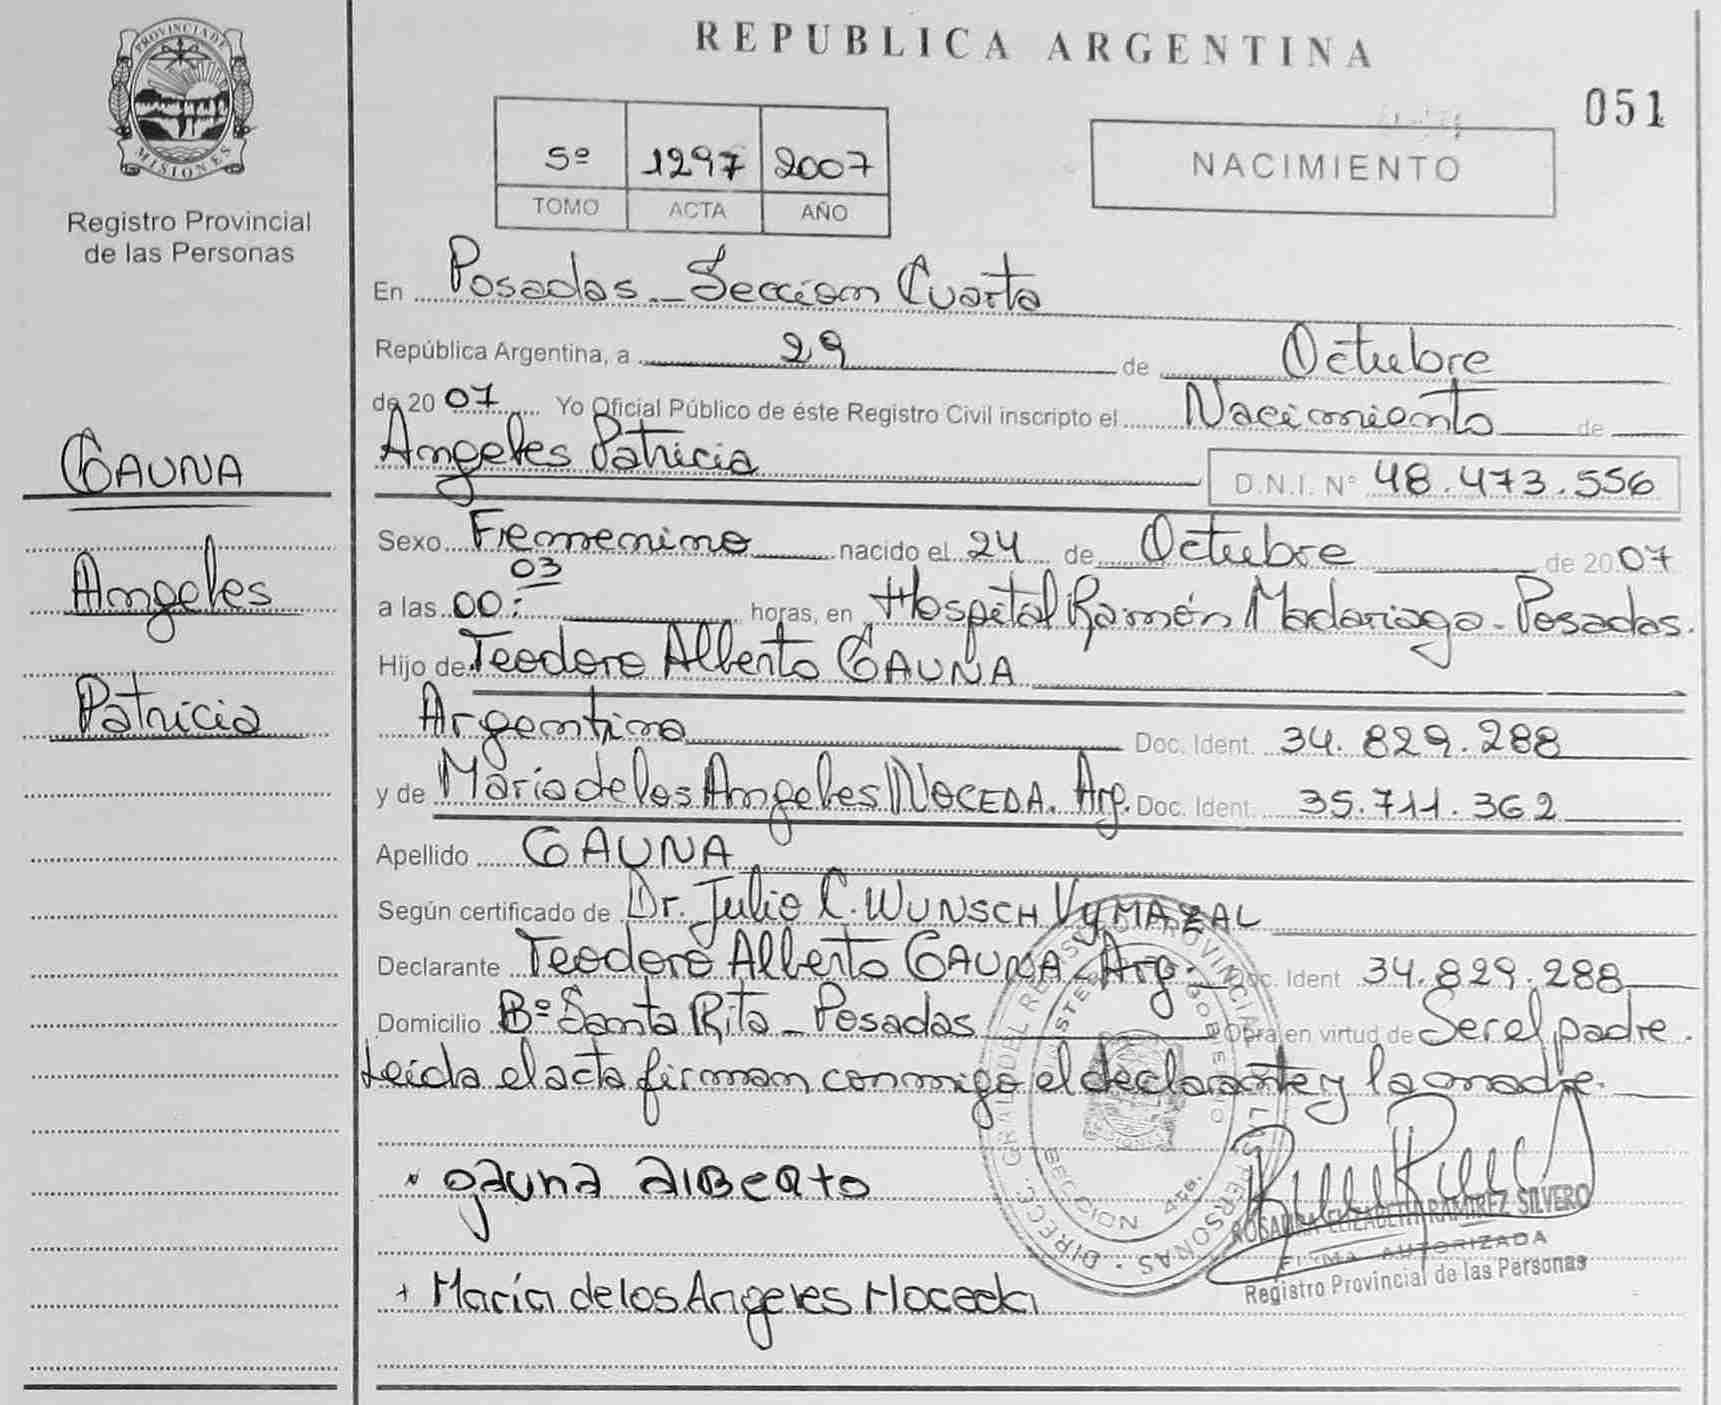 PROVINCIA DE
MISIONES
Registro Provincial
de las Personas
GAUNA
Angeles
Patricia
REPUBLICA ARGENTINA
051
5º 1297 2007
TOMO ACTA AÑO
NACIMIENTO
En Posadas - Seccion Cuarta
República Argentina, a 29 de Octubre
de 20 07 Yo Oficial Público de éste Registro Civil inscripto el Nacimiento de
Angeles Patricia D.N.I. Nº 48.473.556
Sexo Femenino nacido el 24 de Octubre de 20 07
a las 00:03 horas, en Hospital Ramón Madariaga - Posadas.
Hijo de Teodoro Alberto GAUNA
Argentino Doc. Ident. 34.829.288
y de María de los Angeles NOCEDA. Arg. Doc. Ident. 35.711.362
Apellido GAUNA
Según certificado de Dr. Julio C. WUNSCH VYMAZAL
Declarante Teodoro Alberto GAUNA - Arg. Doc. Ident 34.829.288
Domicilio Bº Santa Rita - Posadas Obra en virtud de Ser el padre.
Leída el acta firman conmigo el declarante y la madre.
Gauna Alberto
María de los Angeles Noceda
ROSALBA ELIZABETH RAMIREZ SILVERO
FIRMA AUTORIZADA
Registro Provincial de las Personas